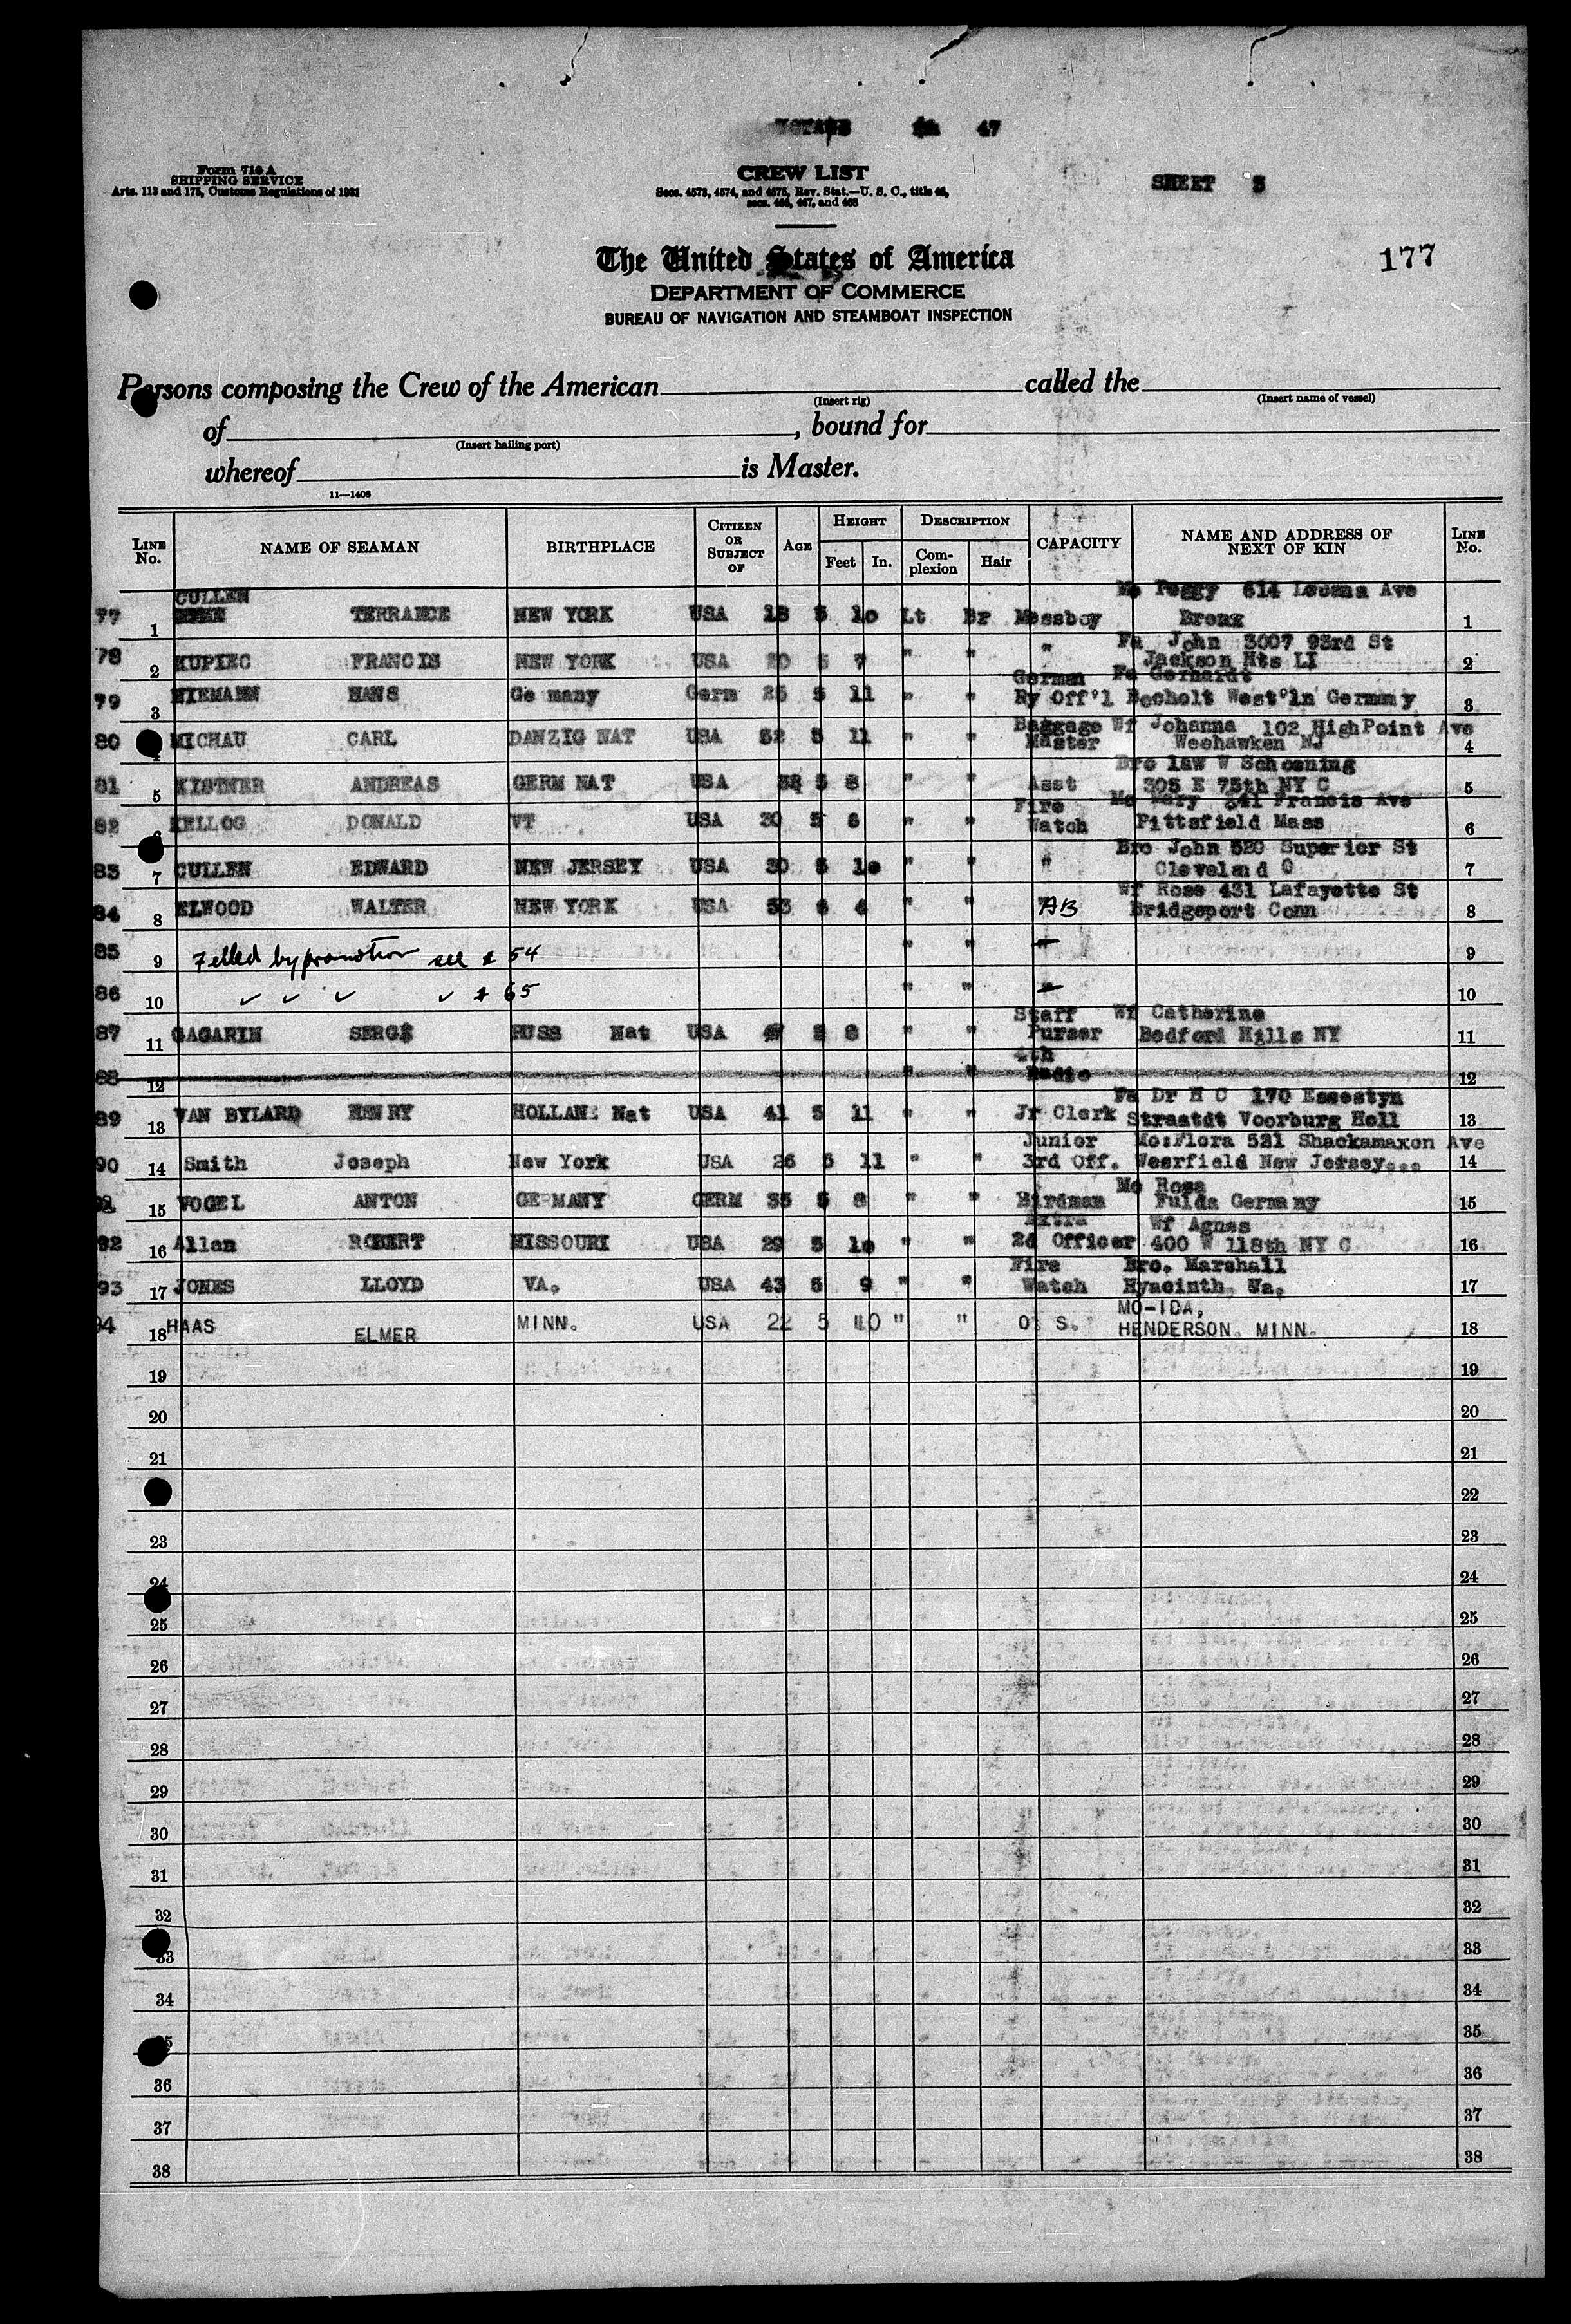 VOYAGE 47
Form 710 A
SHIPPING SERVICE
Arts. 113 and 175, Customs Regulations of 1931
CREW LIST
Secs. 4573, 4574, and 4575, Rev. Stat.—U. S. C., title 46,
secs. 466, 467, and 468
SHEET 3
The United States of America
177
DEPARTMENT OF COMMERCE
BUREAU OF NAVIGATION AND STEAMBOAT INSPECTION
Persons composing the Crew of the American called the
(Insert rig) (Insert name of vessel)
of , bound for
(Insert hailing port)
whereof is Master.
11—1408
LINE No. NAME OF SEAMAN BIRTHPLACE CITIZEN OR SUBJECT OF AGE HEIGHT Feet In. DESCRIPTION Complexion Hair CAPACITY NAME AND ADDRESS OF NEXT OF KIN LINE No.
CULLEN Mo Peggy 614 Ave
77 1 TERRANCE NEW YORK USA 18 5 10 Lt Br Messboy Bronx 1
Fa John 3007 93rd St
78 2 KUPIEC FRANCIS NEW YORK USA 20 5 7 " " " Jackson Hts LI 2
German Fa Gerhardt
79 3 NIEMANN HANS Ge many Germ 25 5 11 " " Ry Off'l Bocholt West'ln Germny 3
Baggage Wf Johanna 102 HighPoint Ave
80 MICHAU CARL DANZIG NAT USA 52 5 11 " " Master Weehawken NJ 4
Bro law W Schoening
81 5 KISTNER ANDREAS GERM NAT USA 38 5 8 " " Asst 305 E 75th NY C 5
Fire Mo Mary 341 Francis Ave
82 6 KELLOG DONALD VT USA 30 5 6 " " Watch Pittsfield Mass 6
Bro John 520 Superior St
83 7 CULLEN EDWARD NEW JERSEY USA 30 5 10 " " " Cleveland O 7
Wf Rose 431 Lafayette St
84 8 ELWOOD WALTER NEW YORK USA 53 5 4 " " AB Bridgeport Conn 8
85 9 Filled by promotion see # 54 " " " 9
86 10 ✓ ✓ ✓ ✓ # 65 " " " 10
Staff Wf Catherine
87 11 GAGARIN SERGE RUSS Nat USA 47 5 8 " " Purser Bedford Hills NY 11
4th
88 12 " " Radio 12
Fa Dr H C 170 Essestyn
89 13 VAN BYLARD HENRY HOLLAND Nat USA 41 5 11 " " Jr Clerk Straatdt Voorburg Holl 13
Junior Mo:Flora 521 Shackamaxon Ave
90 14 Smith Joseph New York USA 26 5 11 " " 3rd Off. Wesrfield New Jersey... 14
Mo Rosa
15 VOGEL ANTON GERMANY GERM 35 5 8 " " Birdman Fulda Germany 15
Extra Wf Agnes
92 16 Allan ROBERT MISSOURI USA 29 5 10 " " 2d Officer 400 W 118th NY C 16
Fire Bro. Marshall
93 17 JONES LLOYD VA. USA 43 5 9 " " Watch Hyacinth, Va. 17
MO-IDA,
94 18 HAAS ELMER MINN. USA 22 5 10 " " O S. HENDERSON. MINN. 18
19 19
20 20
21 21
22
23 23
24 24
25 25
26 26
27 27
28 28
29 29
30 30
31 31
32 32
33 33
34 34
35 35
36 36
37 37
38 38